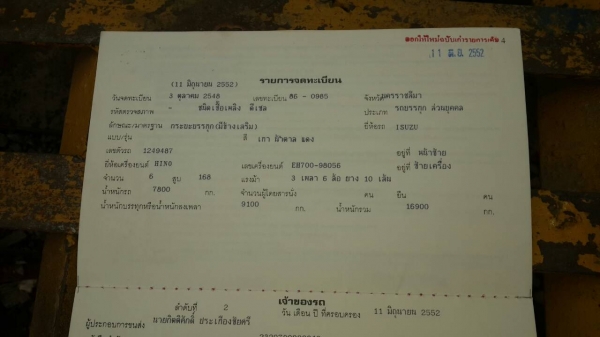 ออกให้ใหม่ฉบับเก่ารายการเต็ม 4
11 มิ.ย. 2552
(11 มิถุนายน 2552) รายการจดทะเบียน
วันจดทะเบียน 3 ตุลาคม 2548 เลขทะเบียน 86-0985 จังหวัด นครราชสีมา
รหัสตรวจสภาพ - ชนิดเชื้อเพลิง ดีเซล ประเภท รถบรรทุก ส่วนบุคคล
ลักษณะ/มาตรฐาน กระบะบรรทุก(มีข้างเสริม) ยี่ห้อรถ ISUZU
แบบ/รุ่น สี เทา น้ำตาล แดง
เลขตัวรถ 1249487 อยู่ที่
ยี่ห้อเครื่องยนต์ HINO เลขเครื่องยนต์ EH700-98056 อยู่ที่ ซ้ายเครื่อง
จำนวน 6 สูบ 168 แรงม้า 3 เพลา 6 ล้อ ยาง 10 เส้น
น้ำหนักรถ 7800 กก. จำนวนผู้โดยสารนั่ง คน ยืน คน
น้ำหนักบรรทุกหรือน้ำหนักลงเพลา 9100 กก. น้ำหนักรวม 16900 กก.
เจ้าของรถ
ลำดับที่ 2 วัน เดือน ปี ที่ครอบครอง 11 มิถุนายน 2552
ผู้ประกอบการขนส่ง นายกิตติศักดิ์ ประเกืองชัยศรี